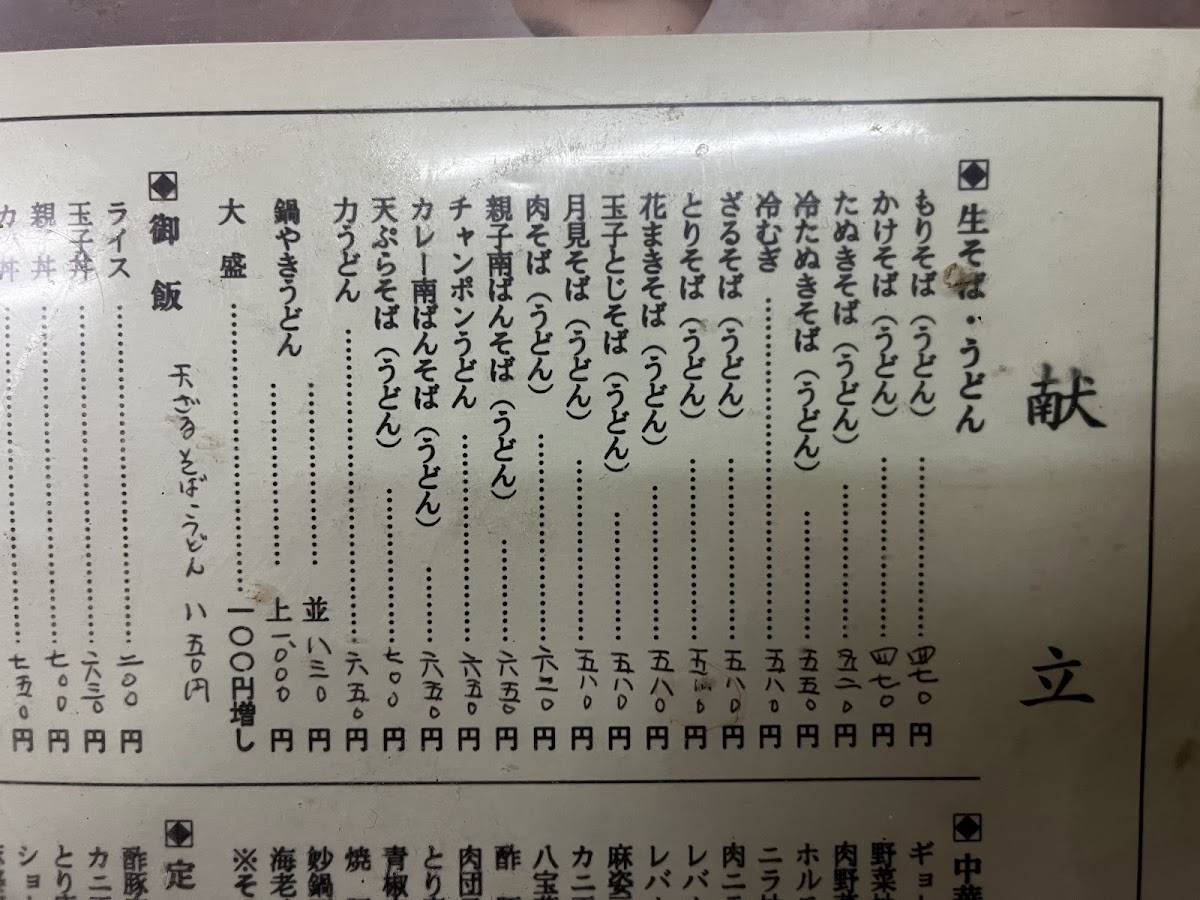 献立
◆生そば・うどん
もりそば(うどん)………四七〇円
かけそば(うどん)………四七〇円
たぬきそば(うどん)………五二〇円
冷たぬきそば(うどん)………五五〇円
冷むぎ………五八〇円
ざるそば(うどん)………五八〇円
とりそば(うどん)………円
花まきそば(うどん)………五八〇円
玉子とじそば(うどん)………五八〇円
月見そば(うどん)………五八〇円
肉そば(うどん)………六二〇円
親子南ばんそば(うどん)………六五〇円
チャンポンうどん………六五〇円
カレー南ばんそば(うどん)………六五〇円
天ぷらそば(うどん)………七〇〇円
力うどん………六五〇円
鍋やきうどん………並八三〇円
………上一、〇〇〇円
大盛………一〇〇円増し
天ざるそば・うどん 八五〇円
◆御飯
ライス………二〇〇円
玉子丼………六三〇円
親子丼………七〇〇円
丼………七五〇円
◆中華
ギョ
野菜
肉野菜
ホル
ニラ
肉ニラ
レバ
レバ
麻婆
カニ
八宝菜
酢
肉団
とり
青椒
焼
炒鍋
海老
※そ
◆定
酢豚
カニ
とり
ショ